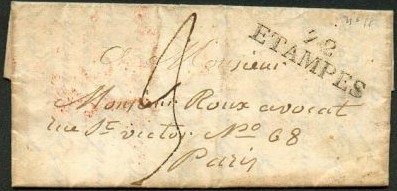 72
ETAMPES
A Monsieur
Monsieur Roux avocat
rue St victor No 68
Paris
3